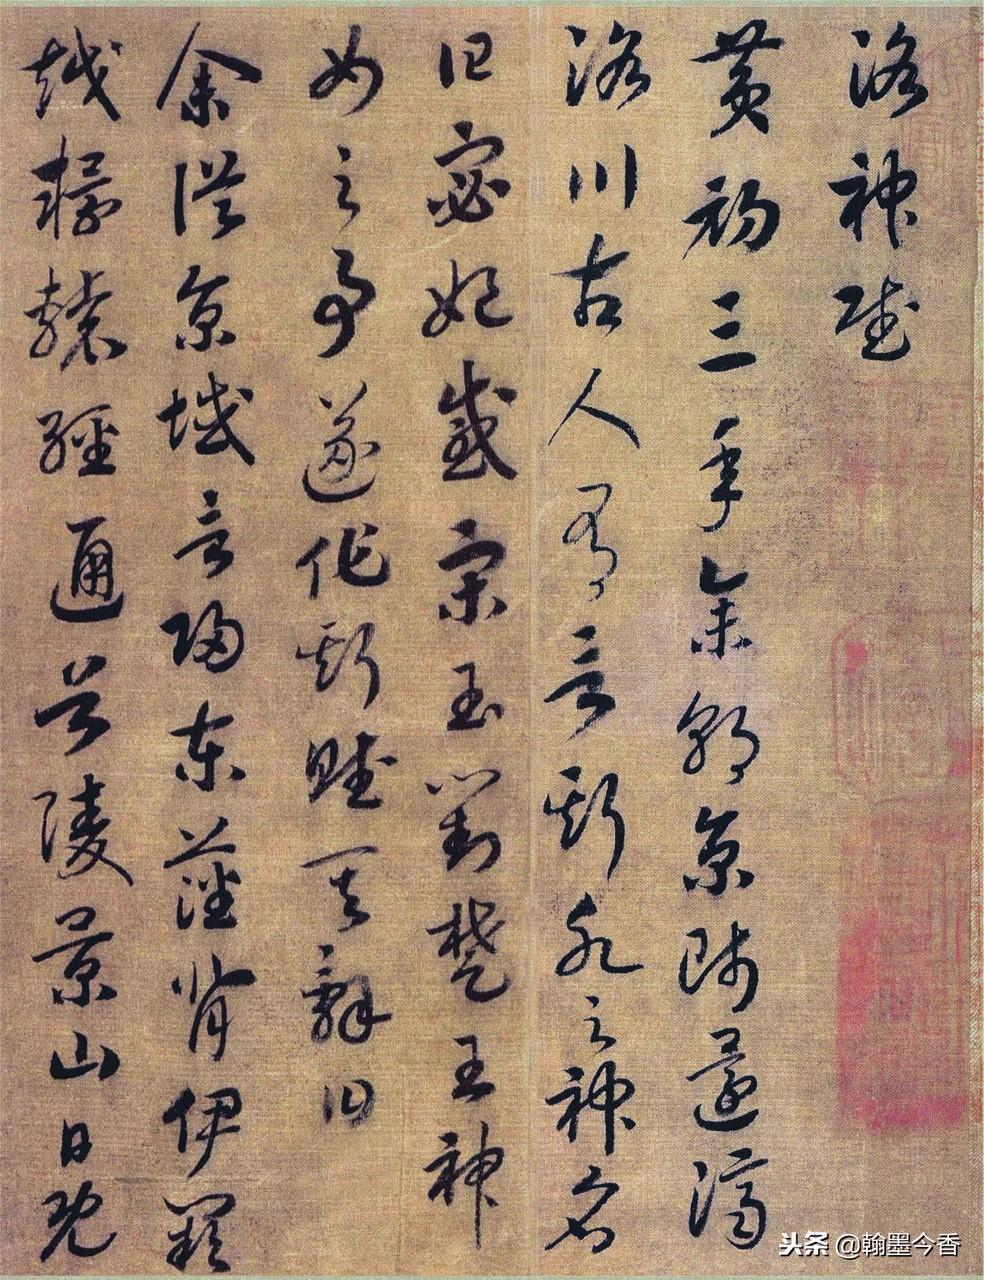 洛神賦
黄初三年余朝京師還濟
洛川古人有言斯水之神名
曰宓妃感宋玉對楚王神
女之事遂作斯賦其辭曰
余從京域言歸東藩背伊闕
越轘轅經通谷陵景山日既
头条 @翰墨今香